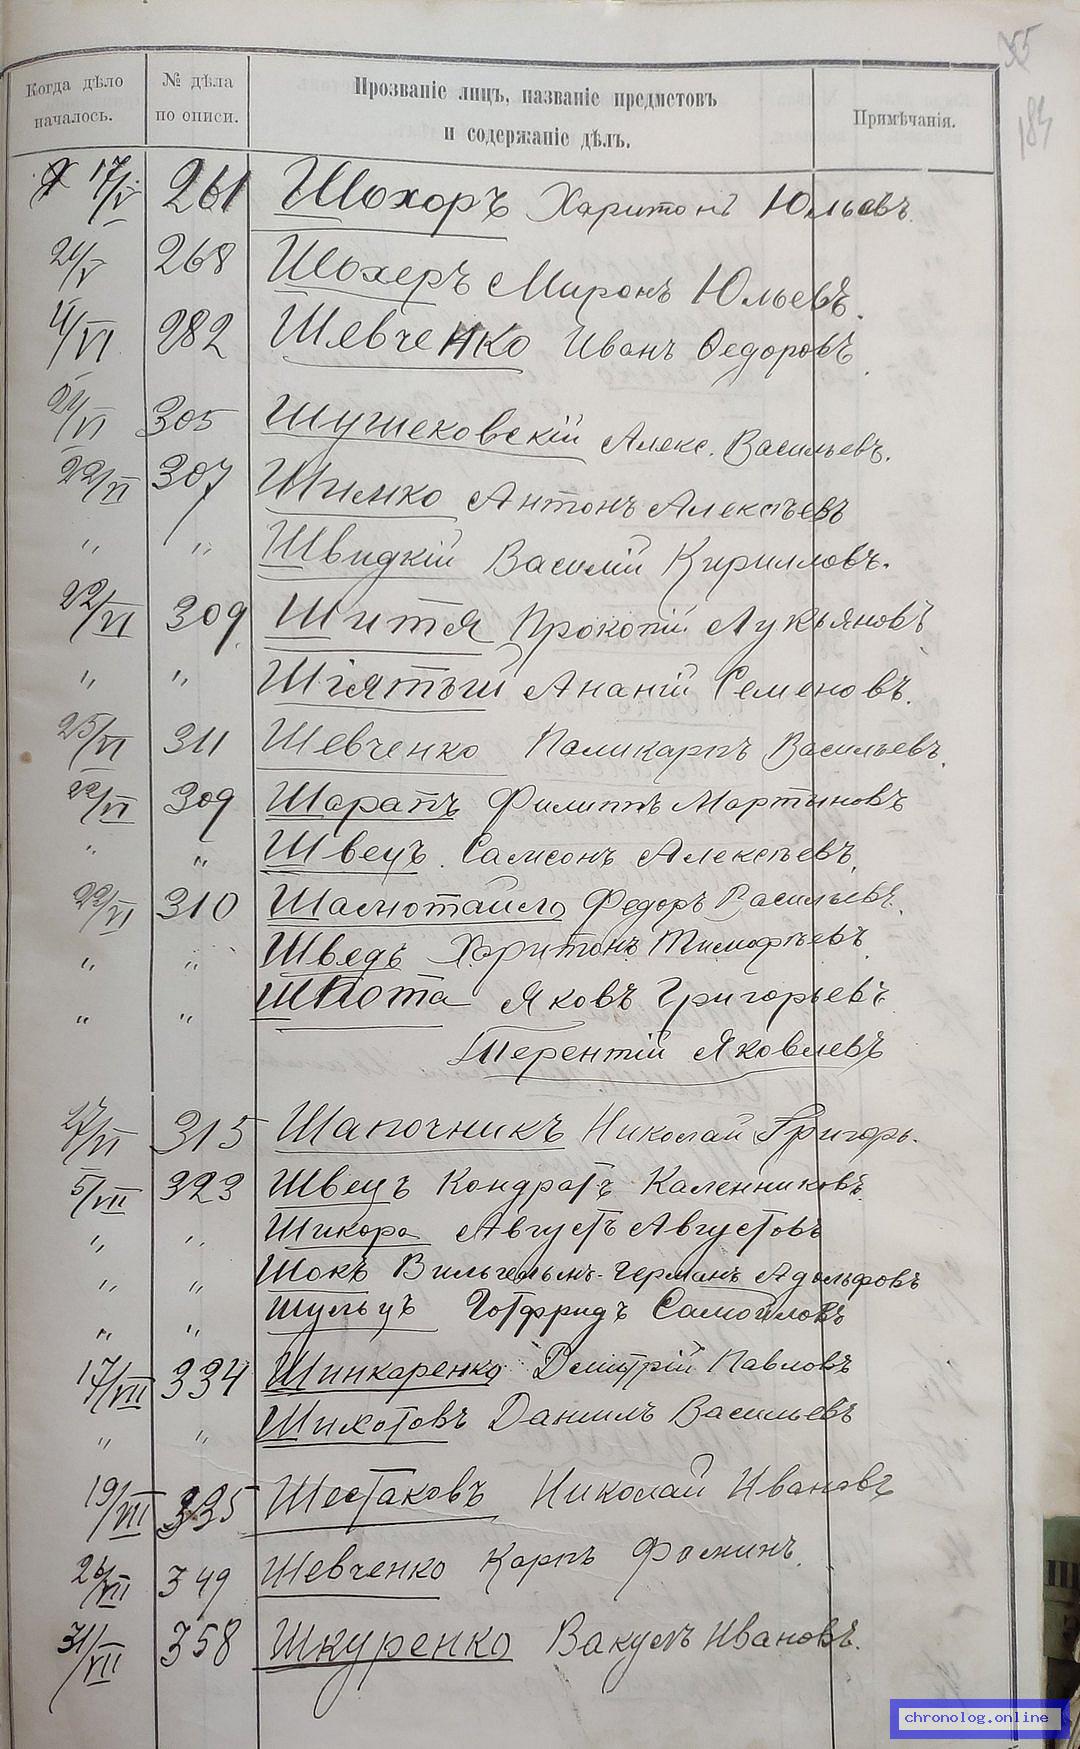 Когда дѣло началось.
№ дѣла по описи.
Прозваніе лицъ, названіе предметовъ
и содержаніе дѣлъ.
Примѣчанія.
184
17/V 261 Шохоръ Харитонъ Юльевъ.
268 Шохеръ Миронъ Юльевъ.
4/VI 282 Шевченко Иванъ Ѳедоровъ.
21/VI 305 Шушековскій Алекс. Васильевъ.
22/VI 307 Шимко Антонъ Алексѣевъ
" " Швидкій Василій Кирилловъ.
22/VI 309 Шитя Прокопій Лукьяновъ
" " Ананій Семеновъ.
25/VI 311 Шевченко Поликарпъ Васильевъ.
22/VI 309 Шарапъ Филиппъ Мартыновъ
" " Швецъ Самсонъ Алексѣевъ.
22/VI 310 Федоръ Васильевъ.
" " Шведъ Харитонъ Тимофѣевъ
" " Шпота Яковъ Григорьевъ
Терентій Яковлевъ
27/VI 315 Шапочникъ Николай Григорь.
5/VII 323 Швецъ Кондратъ Каленниковъ.
" " Шикора Августъ Августовъ
" " Шокъ Вильгельмъ-Германъ Адольфовъ
" " Шульцъ Готфридъ Самойловъ
17/VII 334 Шинкаренко Дмитрій Павловъ
" " Шихотовъ Даніилъ Васильевъ
19/VII 335 Шестаковъ Николай Ивановъ
26/VII 349 Шевченко Карпъ Фоминъ.
31/VII 358 Шкуренко Вакумъ Ивановъ.
chronolog.online